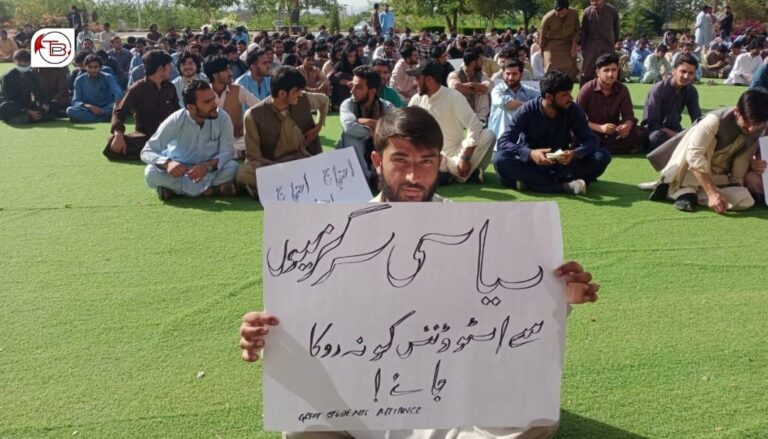 TB
احتجاج احتجاج
سیاسی سرگرمیوں
سے اسٹوڈنٹس کو نہ روکا
جائے!
GRPHT STUDENTS ALLIANCE